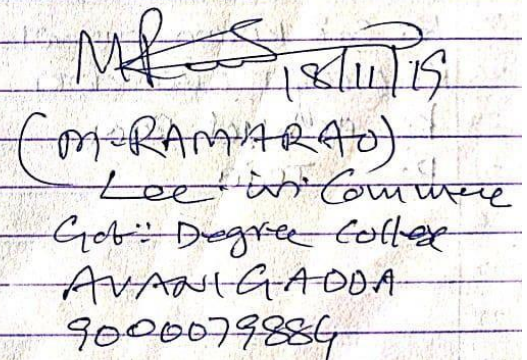 18/11/19
(M. RAMARAO)
Lec. in. Commerce
Govt: Degree College
AVANIGADDA
9000079884